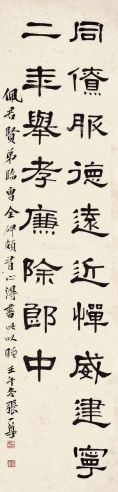 同僚服德遠近憚威建寧
二年舉孝廉除郎中
佩君賢弟臨曹全碑頗有心得書此以贈壬午冬張一麐